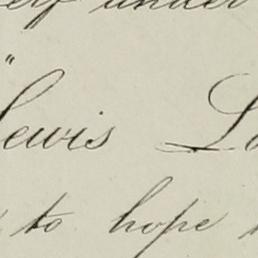 under
Lewis
to hope